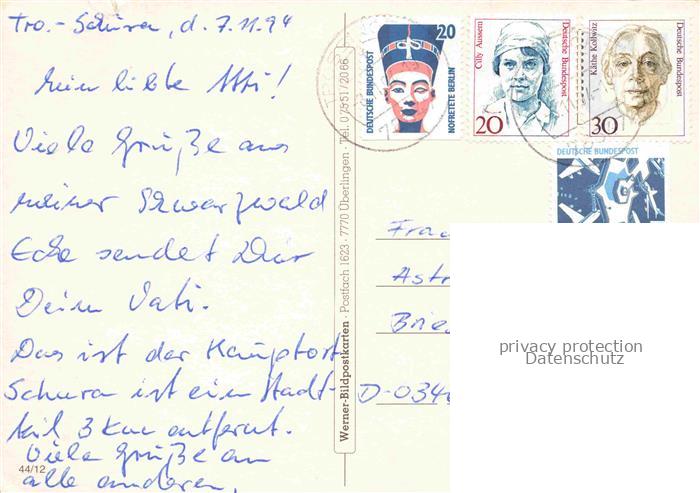 Tro.-Schura, d. 7.11.94
Meine liebe Atti!
Viele Grüße aus
meiner Schwarzwald
Ecke sendet Dir
Dein Vati.
Das ist der Hauptort
Schura ist ein Stadt-
teil 3 km entfernt.
Viele Grüße an
alle anderen,
44/12
Werner-Bildpostkarten · Postfach 1623 · 7770 Überlingen · Tel. 07551/2066
DEUTSCHE BUNDESPOST
20
NOFRETETE BERLIN
Cilly Aussem
Deutsche Bundespost
20
Käthe Kollwitz
Deutsche Bundespost
30
DEUTSCHE BUNDESPOST
Frau
Ast
Brie
D-034
privacy protection
Datenschutz